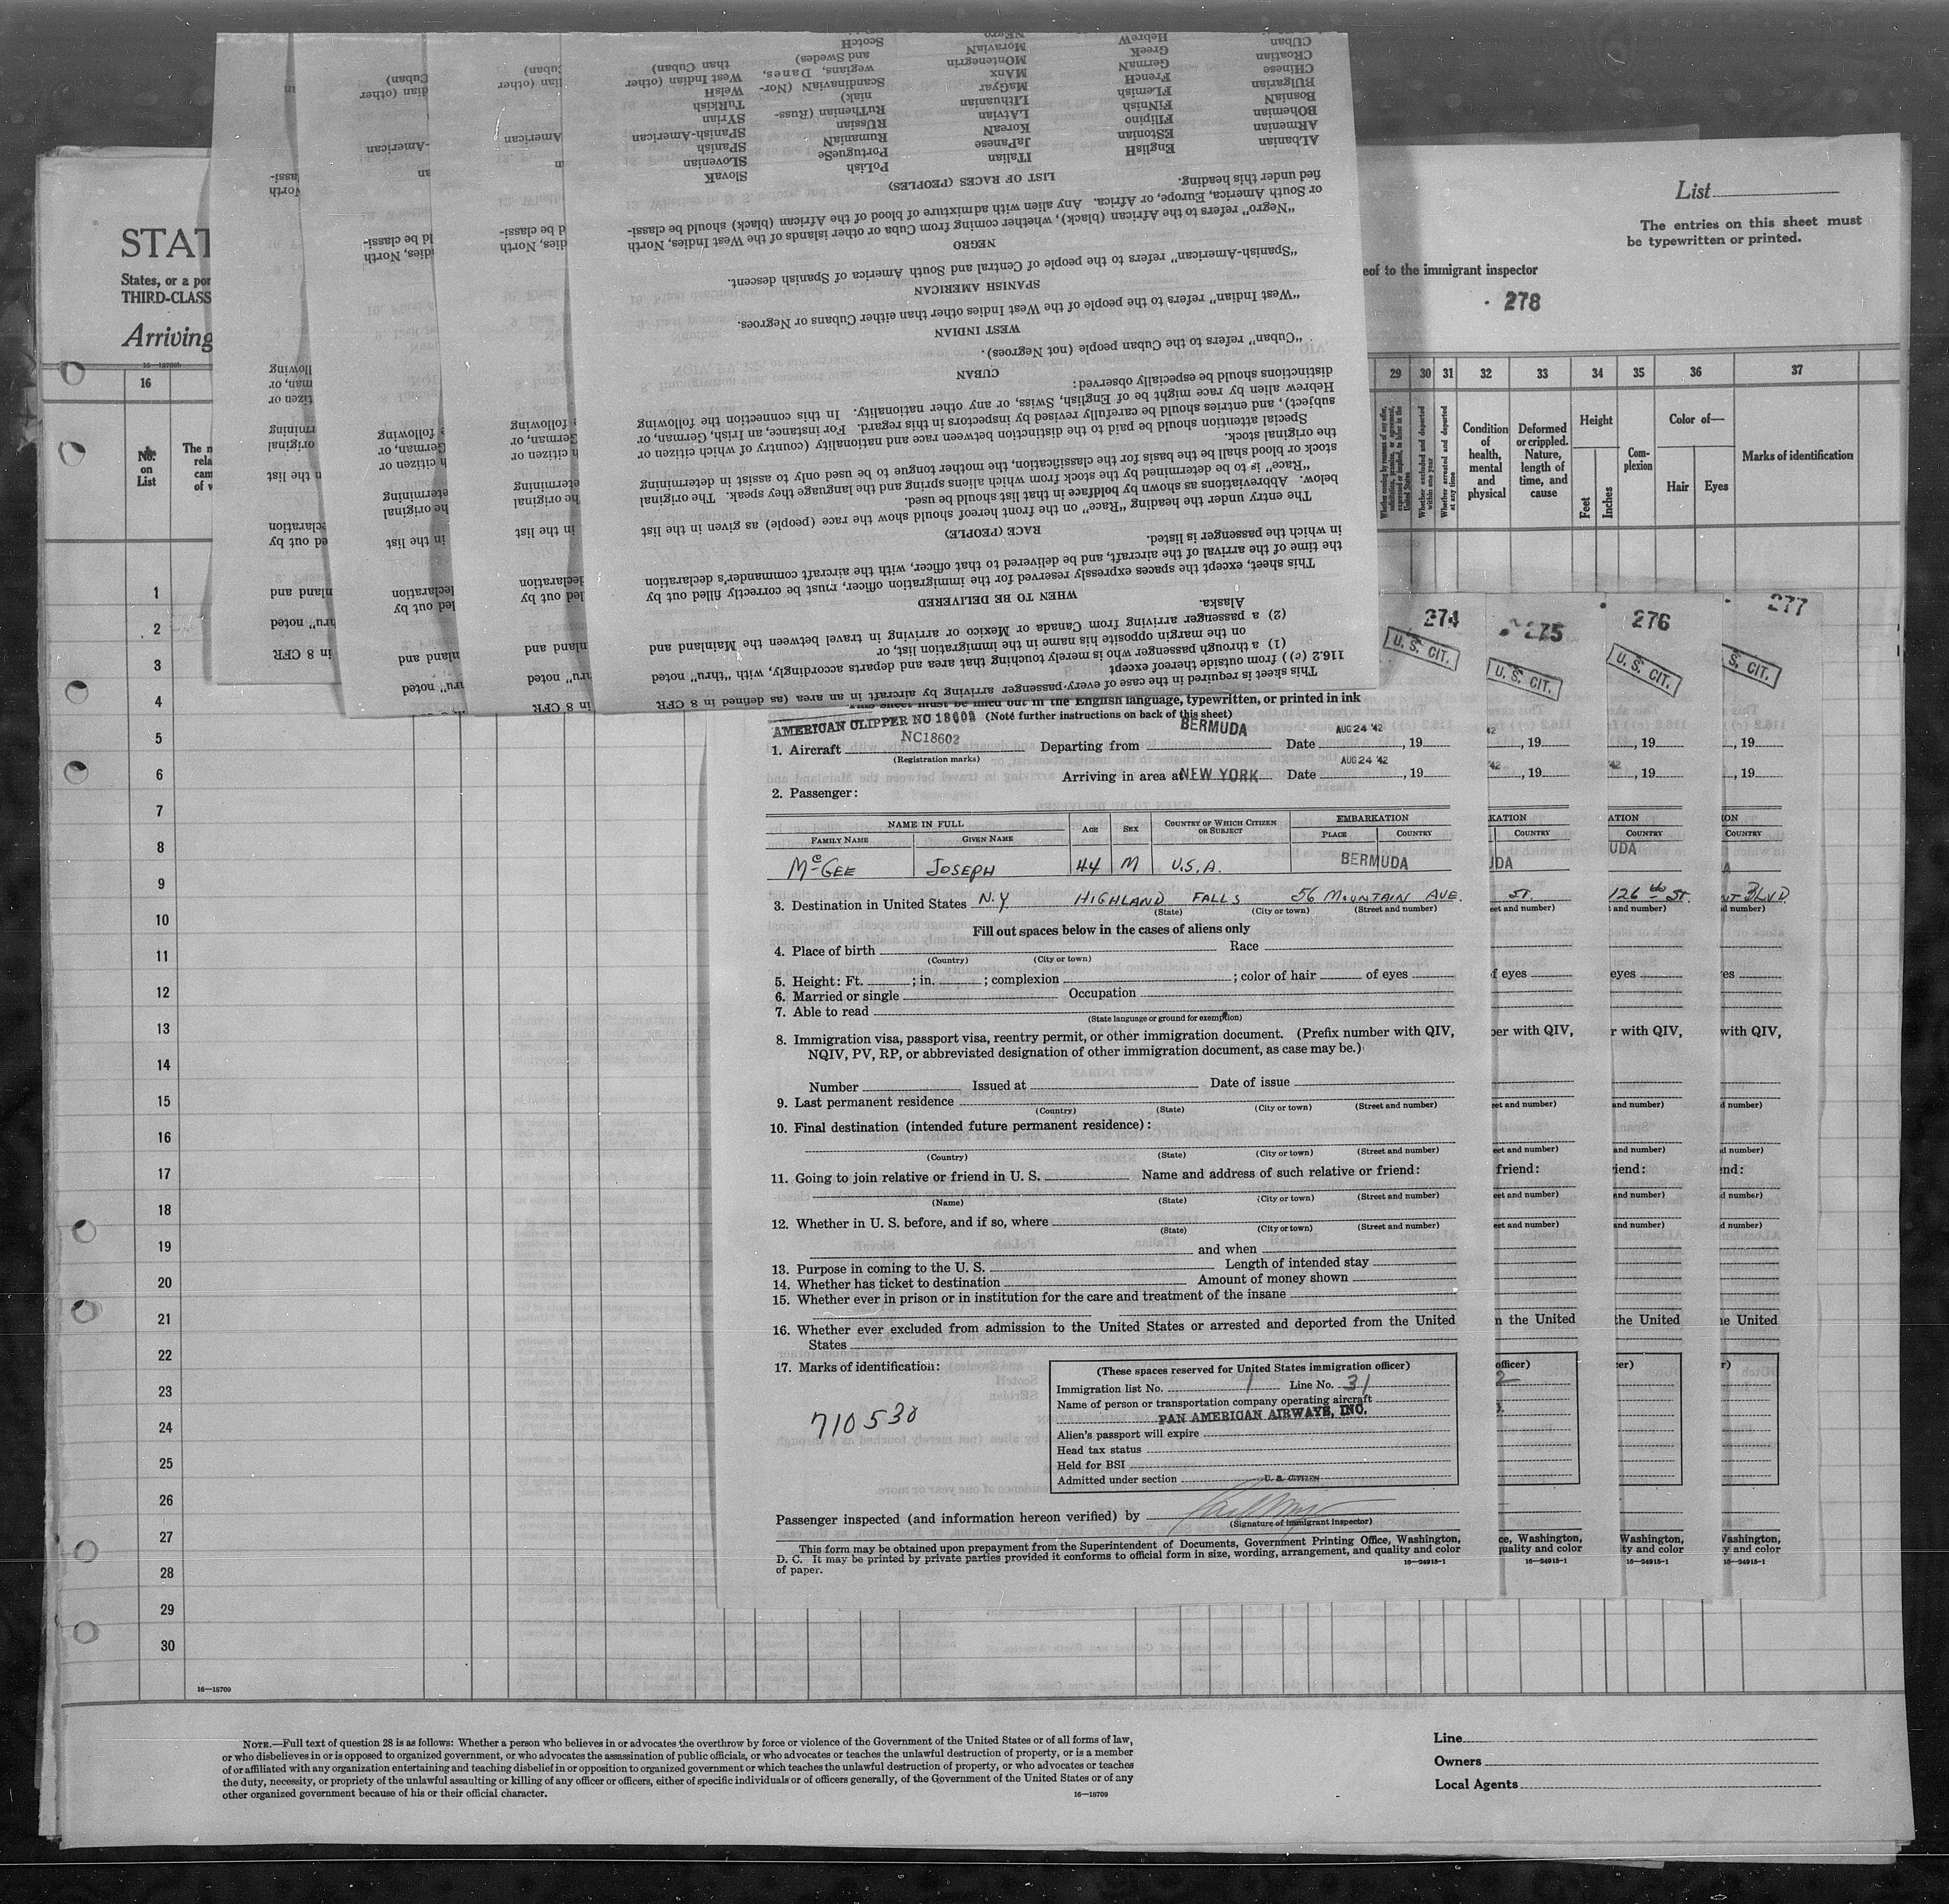 List
The entries on this sheet must
be typewritten or printed.
STAT
States, or a por
THIRD-CLASS
eof to the immigrant inspector
278
Arriving
16—18709
16 29 30 31 32 33 34 35 36 37
No. on List
Whether excluded and deported within one year
Whether arrested and deported at any time
Condition of health, mental and physical
Deformed or crippled. Nature, length of time, and cause
Height
Feet Inches
Complexion
Color of—
Hair Eyes
Marks of identification
1
2
3
4
5
6
7
8
9
10
11
12
13
14
15
16
17
18
19
20
21
22
23
24
25
26
27
28
29
30
16—18709
This sheet is required in the case of every passenger arriving by aircraft in an area (as defined in 8 CFR
116.2 (c)) from outside thereof except
(1) a through passenger who is merely touching that area and departs accordingly, with "thru" noted
on the margin opposite his name in the immigration list, or
(2) a passenger arriving from Canada or Mexico or arriving in travel between the Mainland and
Alaska.
WHEN TO BE DELIVERED
This sheet, except the spaces expressly reserved for the immigration officer, must be correctly filled out by
the time of the arrival of the aircraft, and be delivered to that officer, with the aircraft commander's declaration
in which the passenger is listed.
RACE (PEOPLE)
The entry under the heading "Race" on the front hereof should show the race (people) as given in the list
below. Abbreviations as shown by boldface in that list should be used.
"Race" is to be determined by the stock from which aliens spring and the language they speak. The original
stock or blood shall be the basis for the classification, the mother tongue to be used only to assist in determining
the original stock.
Special attention should be paid to the distinction between race and nationality (country of which citizen or
subject), and entries should be carefully revised by inspectors in this regard. For instance, an Irish, German, or
Hebrew alien by race might be of English, Swiss, or any other nationality. In this connection the following
distinctions should be especially observed:
CUBAN
"Cuban" refers to the Cuban people (not Negroes).
WEST INDIAN
"West Indian" refers to the people of the West Indies other than either Cubans or Negroes.
SPANISH AMERICAN
"Spanish-American" refers to the people of Central and South America of Spanish descent.
NEGRO
"Negro" refers to the African (black), whether coming from Cuba or other islands of the West Indies, North
or South America, Europe, or Africa. Any alien with admixture of blood of the African (black) should be classi-
fied under this heading.
LIST OF RACES (PEOPLES)
ALbanian EngliSH ITalian PoLish SlovaK
ARmenian EStonian JaPanese PortugueSe SLOvenian
BOhemian Filipino KoreaN RumaniaN SPanish
BosniaN FiNNish LAtvian RUssian SPanish-American
BUlgarian FLemiSH LIthuanian RuThenian (Russ- SYrian
CHinese FrencH MaGyar niak) TuRkish
CRoatian GermaN MAnx ScandinaviaN (Nor- WelsH
CUban GreeK MOntenegrin wegians, Danes, West Indian (other
HebreW MoraviaN and Swedes) than Cuban)
NEgro ScotcH
274
U. S. CIT.
275
U. S. CIT.
276
U. S. CIT.
277
S. CIT.
This sheet must be filled out in the English language, typewritten, or printed in ink
AMERICAN CLIPPER NC 18602 (Note further instructions on back of this sheet)
1. Aircraft NC18602 Departing from BERMUDA Date AUG 24 '42, 19
(Registration marks)
Arriving in area at NEW YORK Date AUG 24 '42, 19
2. Passenger:
NAME IN FULL AGE SEX COUNTRY OF WHICH CITIZEN OR SUBJECT EMBARKATION
FAMILY NAME GIVEN NAME PLACE COUNTRY
McGEE JOSEPH 44 M U.S.A. BERMUDA
3. Destination in United States N.Y HIGHLAND FALLS 56 MOUNTAIN AVE.
(State) (City or town) (Street and number)
Fill out spaces below in the cases of aliens only
4. Place of birth Race
(Country) (City or town)
5. Height: Ft. ; in. ; complexion ; color of hair of eyes
6. Married or single Occupation
7. Able to read
(State language or ground for exemption)
8. Immigration visa, passport visa, reentry permit, or other immigration document. (Prefix number with QIV,
NQIV, PV, RP, or abbreviated designation of other immigration document, as case may be.)
Number Issued at Date of issue
9. Last permanent residence
(Country) (State) (City or town) (Street and number)
10. Final destination (intended future permanent residence):
(Country) (State) (City or town) (Street and number)
11. Going to join relative or friend in U. S. Name and address of such relative or friend:
(Name) (State) (City or town) (Street and number)
12. Whether in U. S. before, and if so, where
(State) (City or town) (Street and number)
and when
13. Purpose in coming to the U. S. Length of intended stay
14. Whether has ticket to destination Amount of money shown
15. Whether ever in prison or in institution for the care and treatment of the insane
16. Whether ever excluded from admission to the United States or arrested and deported from the United
States
17. Marks of identification:
710530
(These spaces reserved for United States immigration officer)
Immigration list No. 1 Line No. 31
Name of person or transportation company operating aircraft
PAN AMERICAN AIRWAYS, INC.
Alien's passport will expire
Head tax status
Held for BSI
Admitted under section U. S. CITIZEN
Passenger inspected (and information hereon verified) by
(Signature of immigrant inspector)
This form may be obtained upon prepayment from the Superintendent of Documents, Government Printing Office, Washington,
D. C. It may be printed by private parties provided it conforms to official form in size, wording, arrangement, and quality and color
of paper.
16—24915-1
NOTE.—Full text of question 28 is as follows: Whether a person who believes in or advocates the overthrow by force or violence of the Government of the United States or of all forms of law,
or who disbelieves in or is opposed to organized government, or who advocates the assassination of public officials, or who advocates or teaches the unlawful destruction of property, or is a member
of or affiliated with any organization entertaining and teaching disbelief in or opposition to organized government or which teaches the unlawful destruction of property, or who advocates or teaches
the duty, necessity, or propriety of the unlawful assaulting or killing of any officer or officers, either of specific individuals or of officers generally, of the Government of the United States or of any
other organized government because of his or their official character.
16—18709
Line
Owners
Local Agents